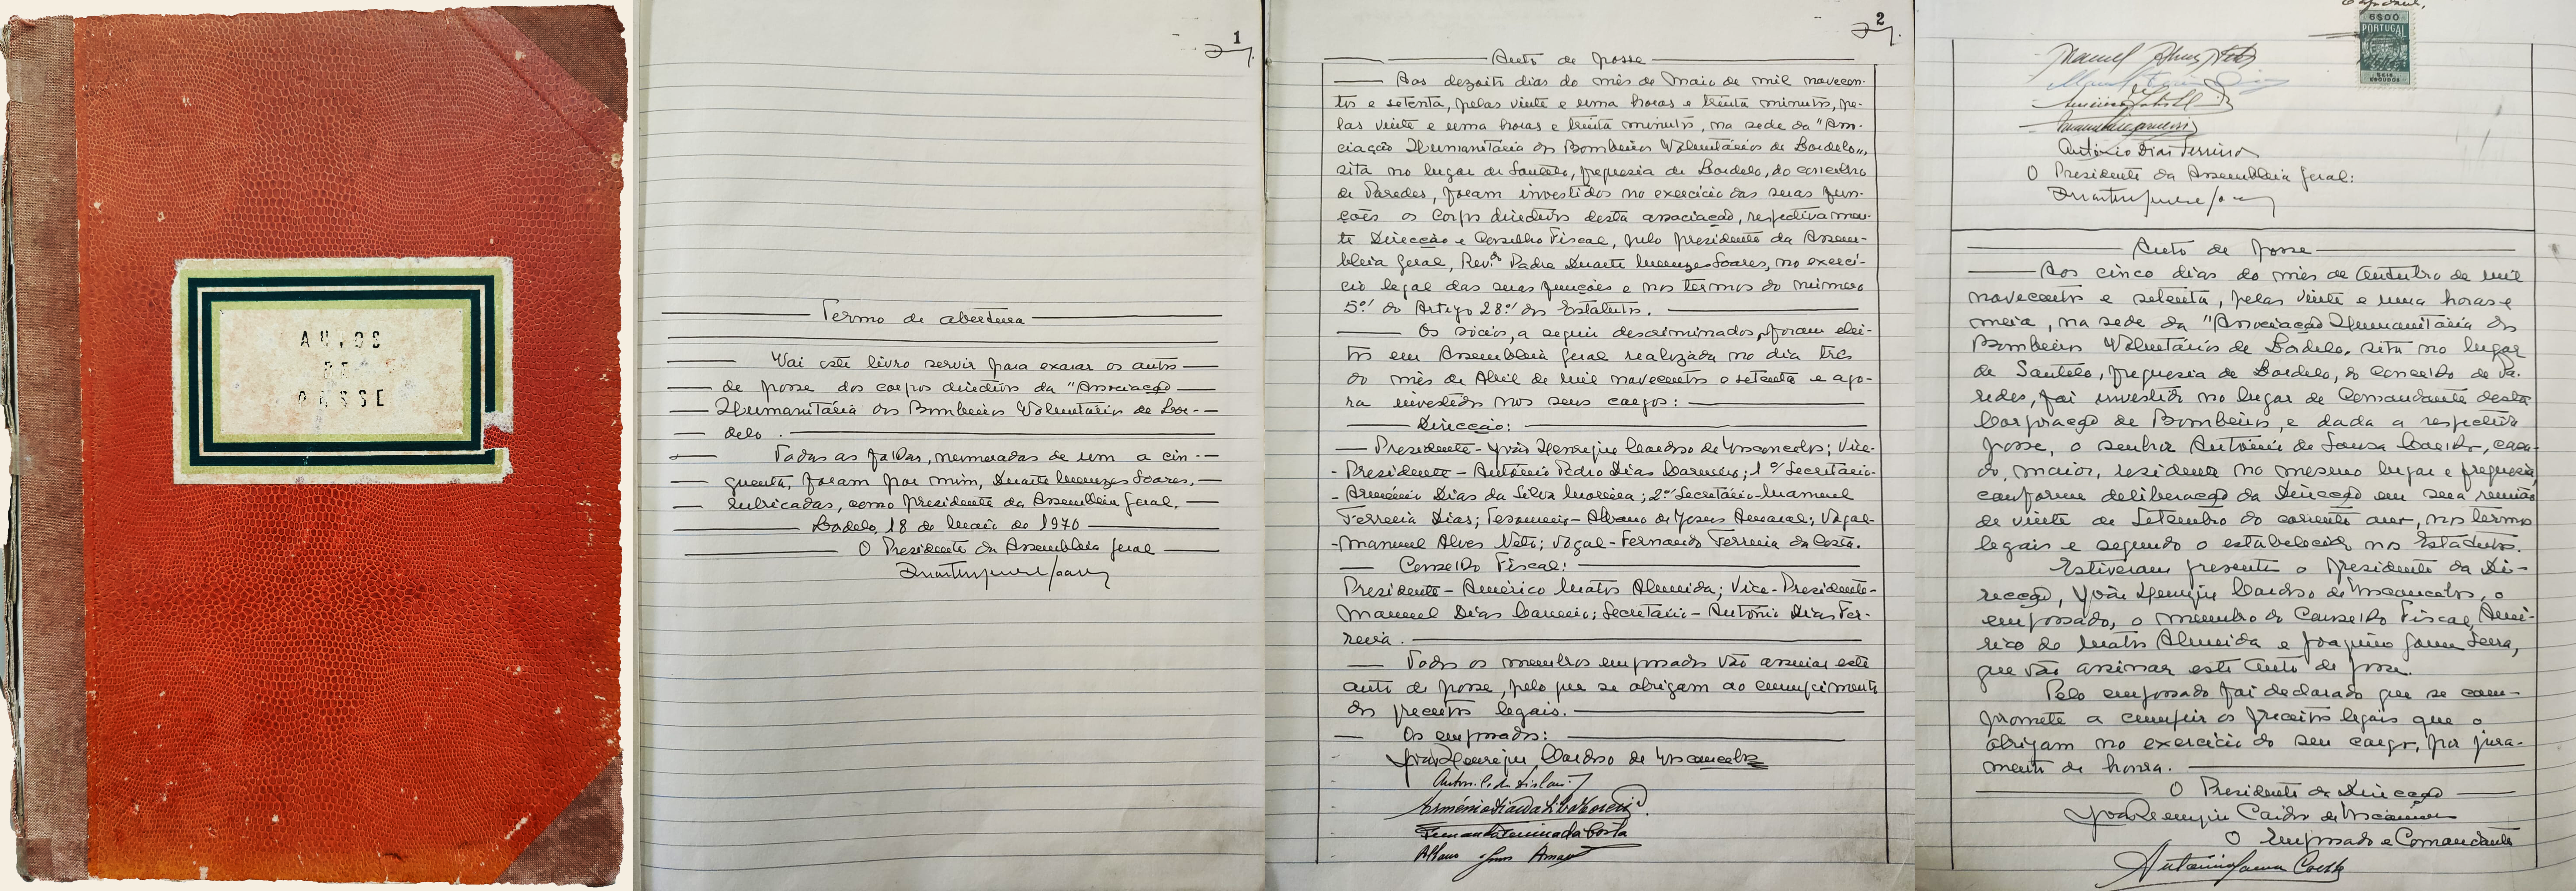 AUTOS
DE
POSSE
1
Termo de abertura
Vai este livro servir para exarar os autos
de posse dos corpos directivos da "Associação
Humanitária dos Bombeiros Voluntários de Lor-
delo.
Todas as folhas, numeradas de um a cin-
quenta, foram por mim, Duarte Menezes Soares,
rubricadas, como Presidente da Assembleia Geral.
Lordelo, 18 de Maio de 1970
O Presidente da Assembleia Geral
2
Auto de posse
Aos dezoito dias do mês de Maio de mil novecen-
tos e setenta, pelas vinte e uma horas e trinta minutos, pe-
las vinte e uma horas e trinta minutos, na sede da "Asso-
ciação Humanitária dos Bombeiros Voluntários de Lordelo",
sita no lugar de Soutelo, freguesia de Lordelo, do concelho
de Paredes, foram investidos no exercício das suas fun-
ções os Corpos directivos desta associação, respectivamen-
te Direcção e Conselho Fiscal, pelo presidente da Assem-
bleia Geral, Rev.do Padre Duarte Menezes Soares, no exercí-
cio legal das suas funções e nos termos do número
5.º do Artigo 28.º dos Estatutos.
Os sócios, a seguir descriminados, foram elei-
tos em Assembleia Geral realizada no dia três
do mês de Abril de mil novecentos e setenta e ago-
ra investidos nos seus cargos:
Direcção:
Presidente - João Henrique Cardoso de Vasconcelos; Vice-
- Presidente - António Pedro Dias Carneiro; 1.º Secretário-
- Arménio Dias da Silva Moreira; 2.º Secretário - Manuel
Ferreira Dias; Tesoureiro - Albano de Jesus Amaral; Vogal-
- Manuel Alves Neto; Vogal - Fernando Ferreira da Costa.
Conselho Fiscal:
Presidente - Américo Matos Almeida; Vice-Presidente-
Manuel Dias Carneiro; Secretário - António Dias Fer-
reira.
Todos os membros empossados vão assinar este
auto de posse, pelo que se obrigam ao cumprimento
dos preceitos legais.
Os empossados:
João Henrique Cardoso de Vasconcelos
Arménio Dias da Silva Moreira
Fernando Ferreira da Costa
Albano Jesus Amaral
6$00
PORTUGAL
SEIS
ESCUDOS
Manuel Alves Neto
António Dias Ferreira
O Presidente da Assembleia Geral:
Auto de posse
Aos cinco dias do mês de Outubro de mil
novecentos e setenta, pelas vinte e uma horas e
meia, na sede da "Associação Humanitária dos
Bombeiros Voluntários de Lordelo, sita no lugar
de Soutelo, freguesia de Lordelo, do Concelho de Pa-
redes, foi investido no lugar de Comandante desta
Corporação de Bombeiros, e dada a respectiva
posse, o senhor António de Sousa Coelho, casa-
do, maior, residente no mesmo lugar e freguesia,
conforme deliberação da Direcção em sua reunião
de vinte de Setembro do corrente ano, nos termos
legais e segundo o estabelecido nos Estatutos.
Estiveram presente o Presidente da Di-
recção, João Henrique Cardoso de Vasconcelos, o
empossado, o membro do Conselho Fiscal, Amé-
rico de Matos Almeida e Joaquim Gomes Serra,
que vão assinar este auto de posse.
Pelo empossado foi declarado que se com-
promete a cumprir os preceitos legais que o
obrigam no exercício do seu cargo, por jura-
mento de honra.
O Presidente da Direcção
João Henrique Cardoso de Vasconcelos
O empossado e Comandante
António Sousa Coelho